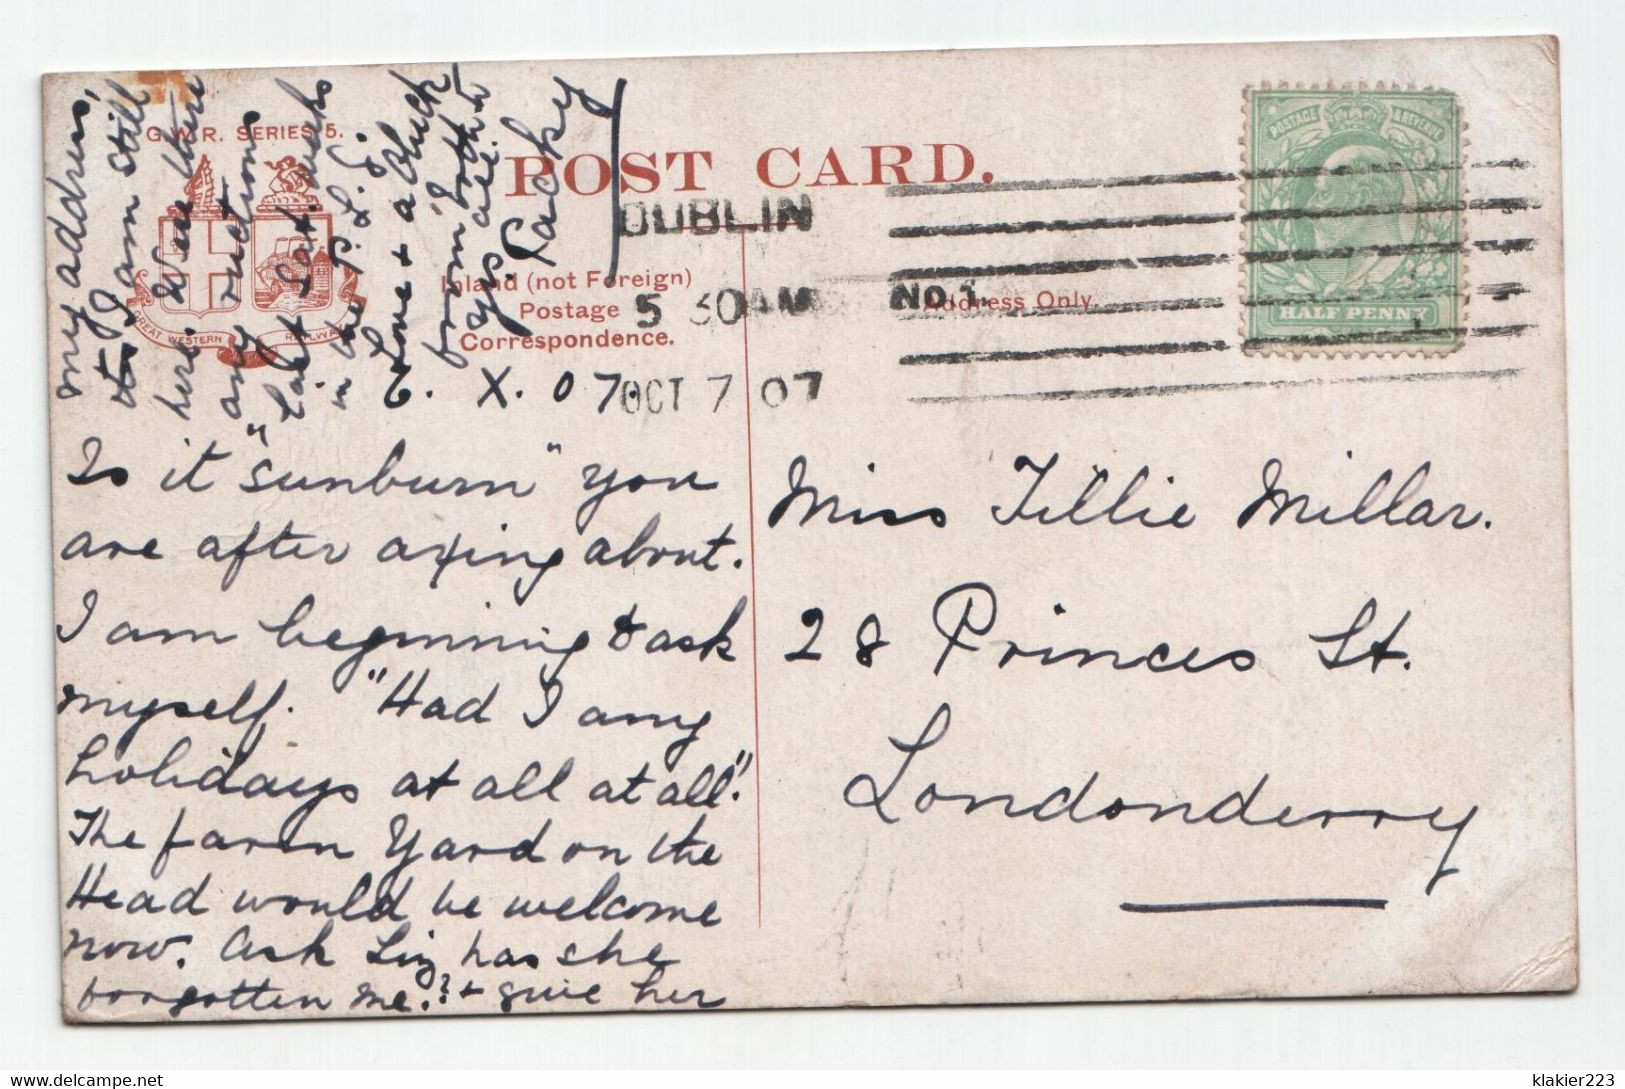 G.W.R. SERIES 5.
POST CARD.
GREAT WESTERN RAILWAY
Inland (not Foreign)
Postage
Correspondence.
Address Only.
DUBLIN
5 30AM NO.1.
OCT 7 07
POSTAGE & REVENUE
HALF PENNY
6. X. 07.
Is it "sunburn" you
are after axing about.
I am beginning to ask
myself. "Had I any
holidays at all at all".
The farm Yard on the
Head would be welcome
now. Ask Liz has she
forgotten me? + give her
my address,
I am still
here. Was there
any ructions
last Sat. week
in the P.L.E.
Love + a Chuck
from both
yrs all
Packy
Miss Tillie Millar.
28 Princes St.
Londonderry
klakier223